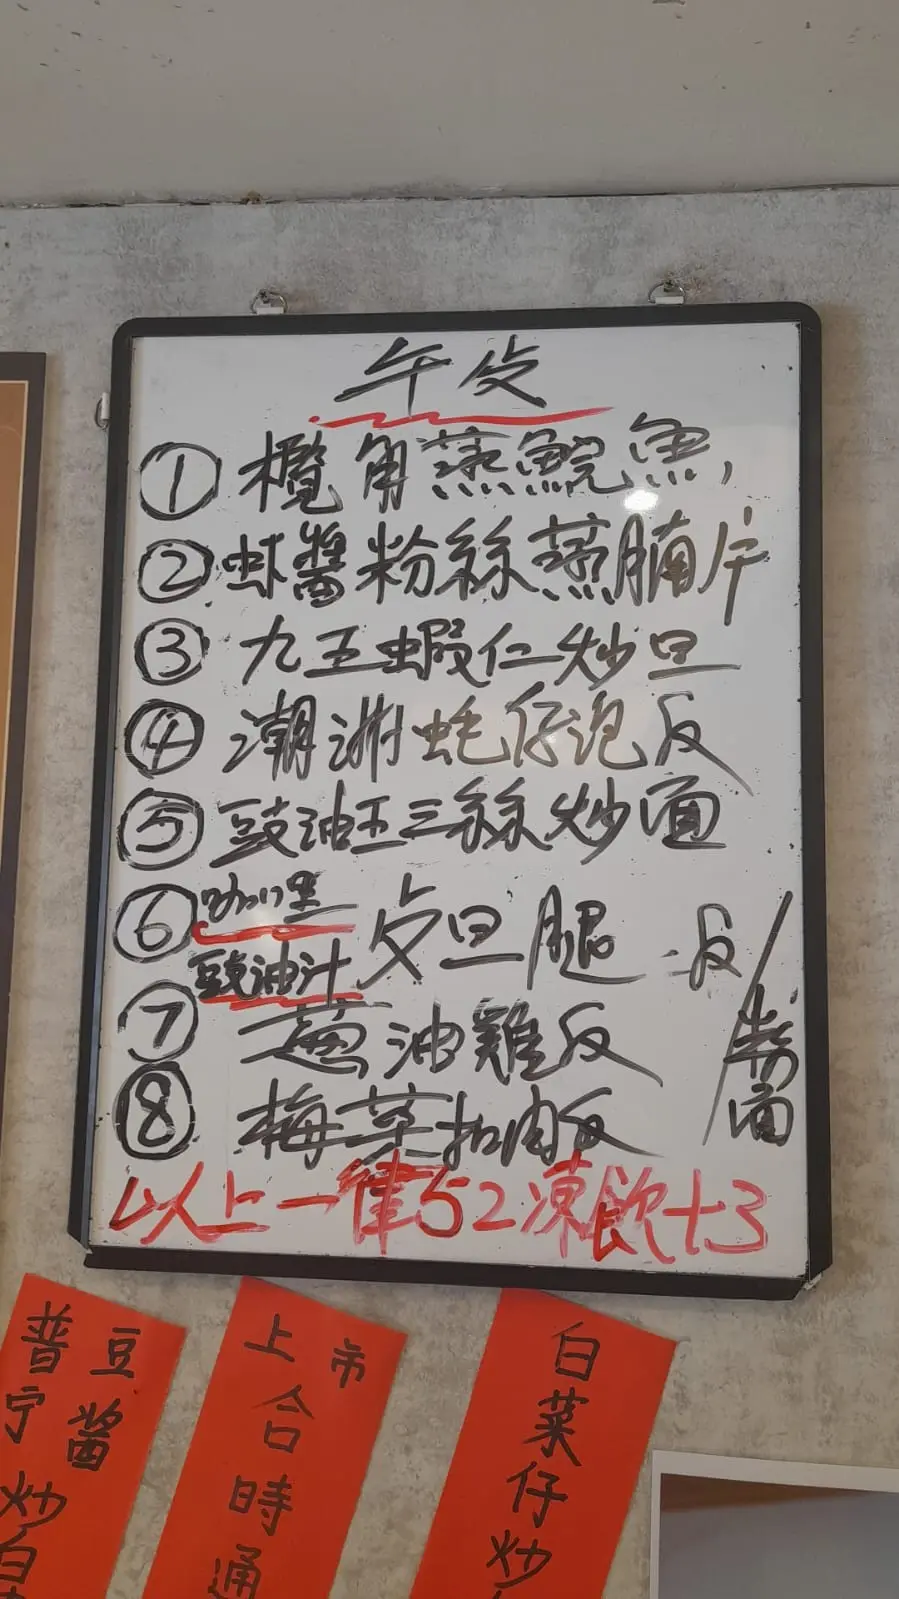 午仮
① 欖角蒸鯇魚
② 虾醬粉絲蒸腩片
③ 九王蝦仁炒旦
④ 潮洲蚝仔泡反
⑤ 豉油王三絲炒面
⑥ 豉油汁 旦腿 反/粉面
⑦ 葱油雞反
⑧ 梅菜扣肉反
以上一律52凍飲+3
普宁豆酱炒
上市 合時通
白菜仔炒